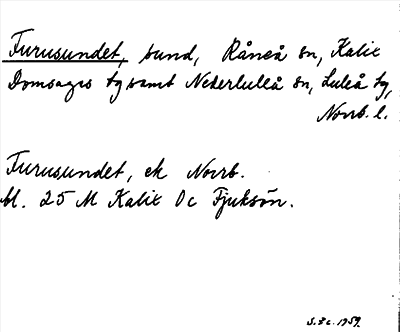 Furusundet, sund, Råneå sn, Kalix
Domsagas tg samt Nederluleå sn, Luleå tg,
Norrb. l.
Furusundet, ek Norrb.
bl. 25 M Kalix Oc Fjuksön.
1959.